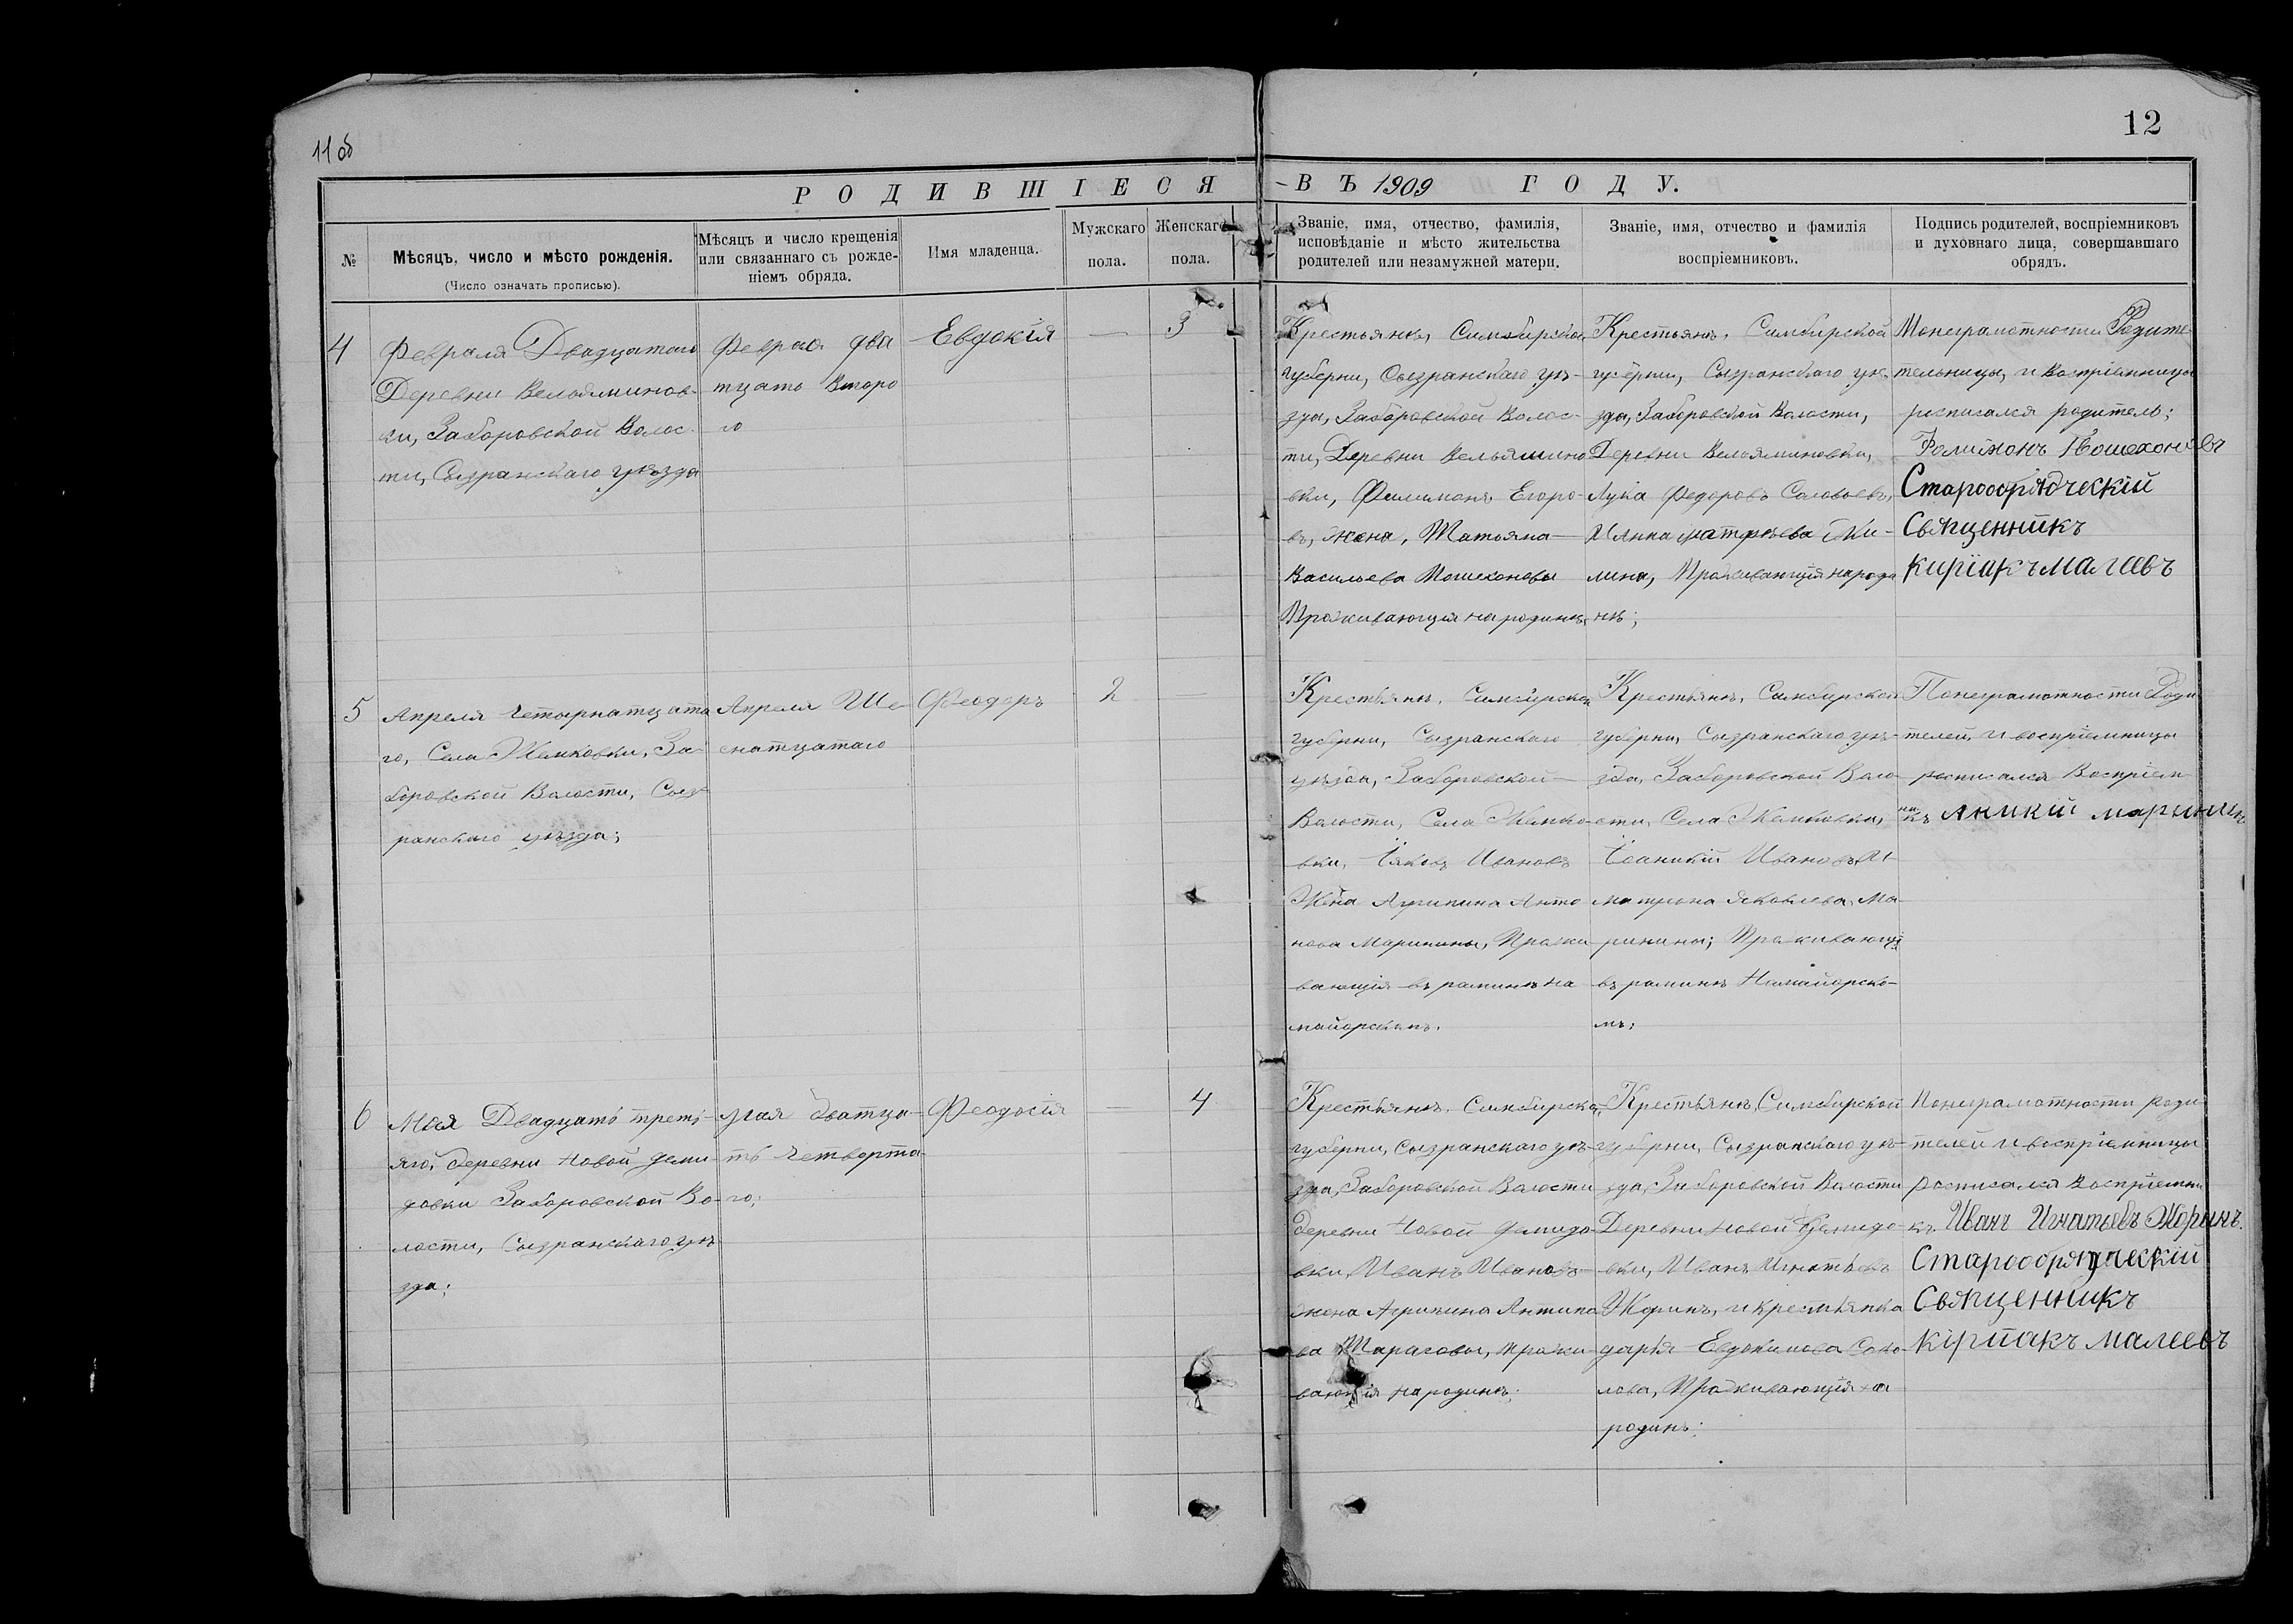 11 об
12
РОДИВШІЕСЯ ВЪ 1909 ГОДУ.
№
Мѣсяцъ, число и мѣсто рожденія.
(Число означать прописью).
Мѣсяцъ и число крещенія
или связаннаго съ рожде-
ніемъ обряда.
Имя младенца.
Мужскаго
пола.
Женскаго
пола.
Званіе, имя, отчество, фамилія,
исповѣданіе и мѣсто жительства
родителей или незамужней матери.
Званіе, имя, отчество и фамилія
воспріемниковъ.
Подпись родителей, воспріемниковъ
и духовнаго лица, совершавшаго
обрядъ.
4
Февраля Двадцатаго
Деревни Вельяминов-
ки, Заборовской Волос-
ти, Сызранскаго уѣзда
два
тцать Второ
го
Евдокія
—
3
Крестьянъ, Симбирской
губерни, Сызранскаго уѣ-
зда, Заборовской Волос-
ти, Деревни Вельямино
вки, Филимонъ Егоро-
въ, жена, Татьяна
Васильева Пошехоновы
Проживающия народинѣ,
Крестьянъ, Симбирской
губерни, Сызранскаго уѣ-
зда, Заборовской Волости,
Деревни Вельяминовки,
Лука Федоровъ Соловьевъ,
И Анна
лина, Проживающія народи
нѣ;
Родите
тельницы, и воспріемницы
росписался родитель;
Старообрядческій
Священникъ
Киріакъ Малеевъ
5
Апреля четырнатцата
го, Села Жемковки, За-
боровской Волости, Сыз-
ранскаго уѣзда;
Апреля Ше-
снатцатаго
Феодоръ
2
—
Крестьянъ, Симбирской
губерни, Сызранскаго
уѣзда, Заборовской
Волости, Села Жемко-
вки, Іяковъ Ивановъ
Жена Агрипина Анто
нова Маринины, Прожи
вающія въ
майорскомъ.
Крестьянъ, Симбирской
губерни, Сызранскаго уѣ-
зда, Заборовской Воло
сти, Села Жемковки,
Іоаникій Ивановъ, И
матрона Яковлева, Ма-
ринины; Проживающі
въ
мъ;
Понеграмотности Роди
телей, и воспріемницы
росписался Воспріем
ни
къ Аникій Марынин
6
Мая Двадцать треть-
яго, деревни Новой Деми-
довки Заборовской Во-
лости, Сызранскаго уѣ
зда;
Мая дватца-
ть четворта-
го;
Феодосія
—
4
Крестьянъ, Симбирской
губерни, Сызранскаго уѣ-
зда, Заборовской Волости
деревни Новой Демидо
вки, Иванъ Ивановъ
жена Агрипина Антипо
ва Тарасовы, прожи
вающія народинѣ;
Крестьянъ, Симбирской
губерни, Сызранскаго уѣ-
зда, Заборовской Волости
Деревни Новой Демидо-
вки, Иванъ Игнатьевъ
Жоринъ, и крестьянка
дарья Евдокимова Соко
лова, Проживающія на
родинѣ;
Понеграмотности роди
телей и воспріемницы
росписался Воспріемни
къ Иванъ Игнатьевъ Жорынъ.
Старообрядческій
Священникъ
Кіріакъ Малеевъ